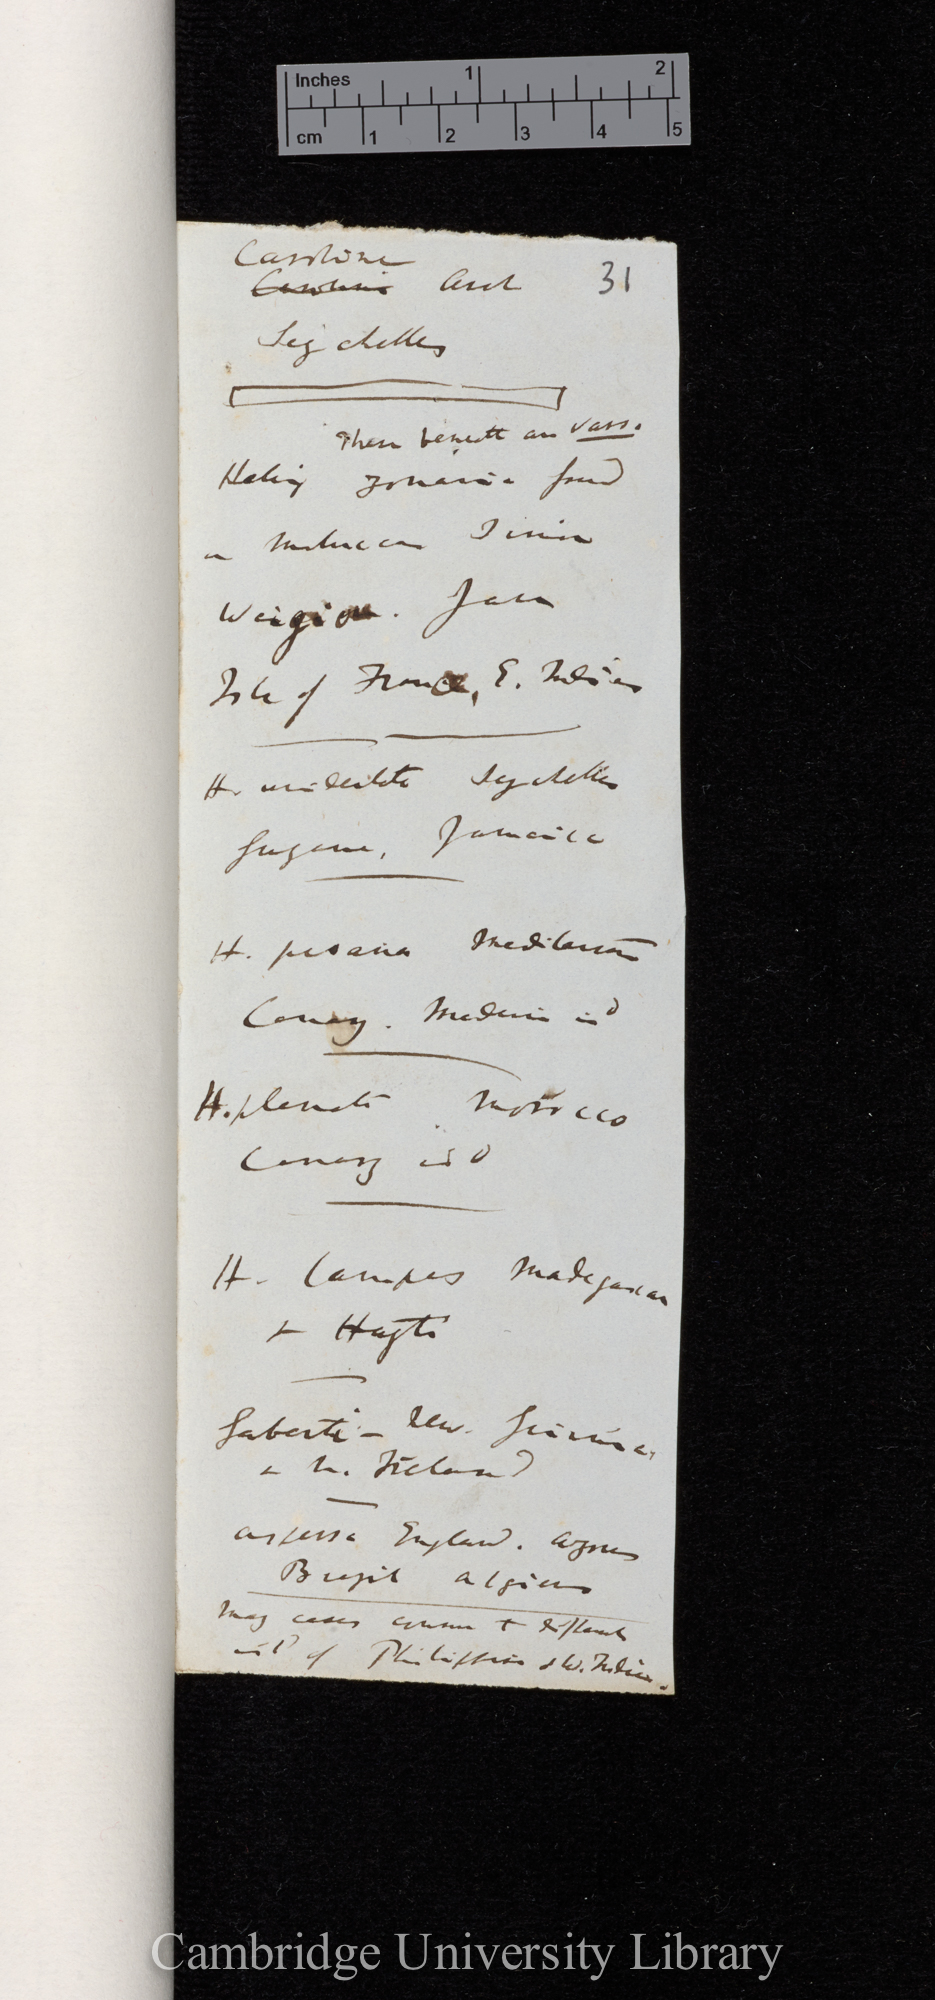 Inches 1 2
cm 1 2 3 4 5
Caroline 31
Caroline Arch
Seychelles
These beneath are vars.
Helix zonaria found
in Moluccas Timor
Waigiou. Java
Isle of France, E. Indies
H. unidentata Seychelles
Guyana, Jamaica
H. pisana Mediterran
Canary. Madeira isd
H. planata Morocco
Canary isd
H. Campes Madagascar
& Hayti
Gaberti - New. Guinea,
& N. Ireland
aspersa England. Azores
Brazil Algiers
Many cases common to different
isld of Philippines & W. Indies.
Cambridge University Library